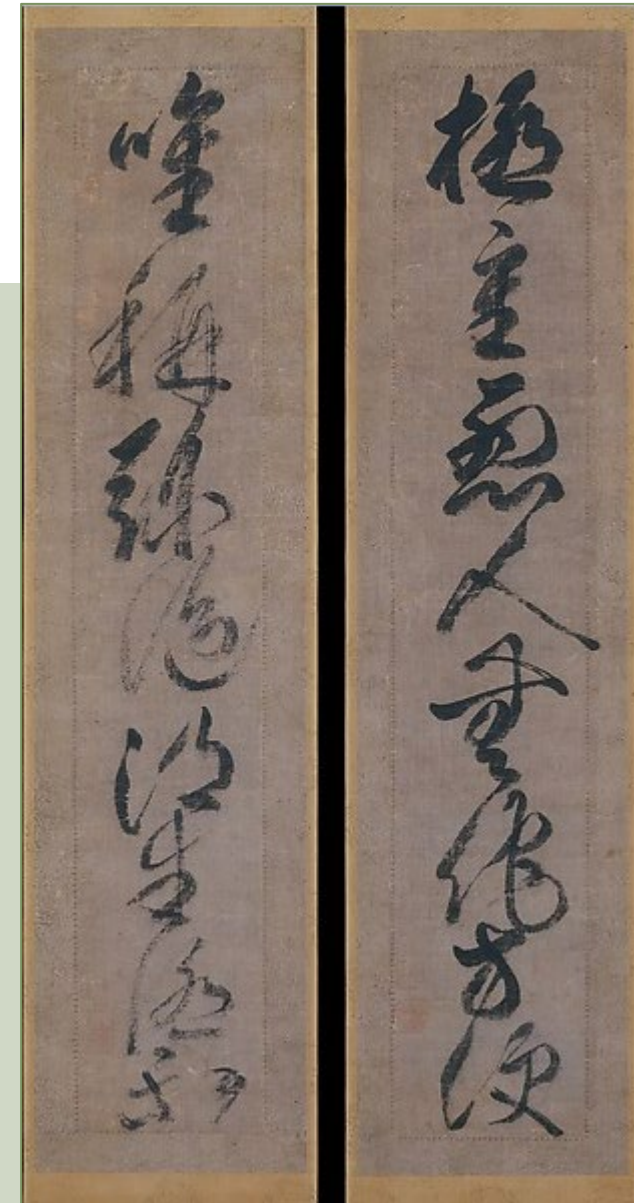 極重惡人無他方便
唯稱弥陀得生極樂